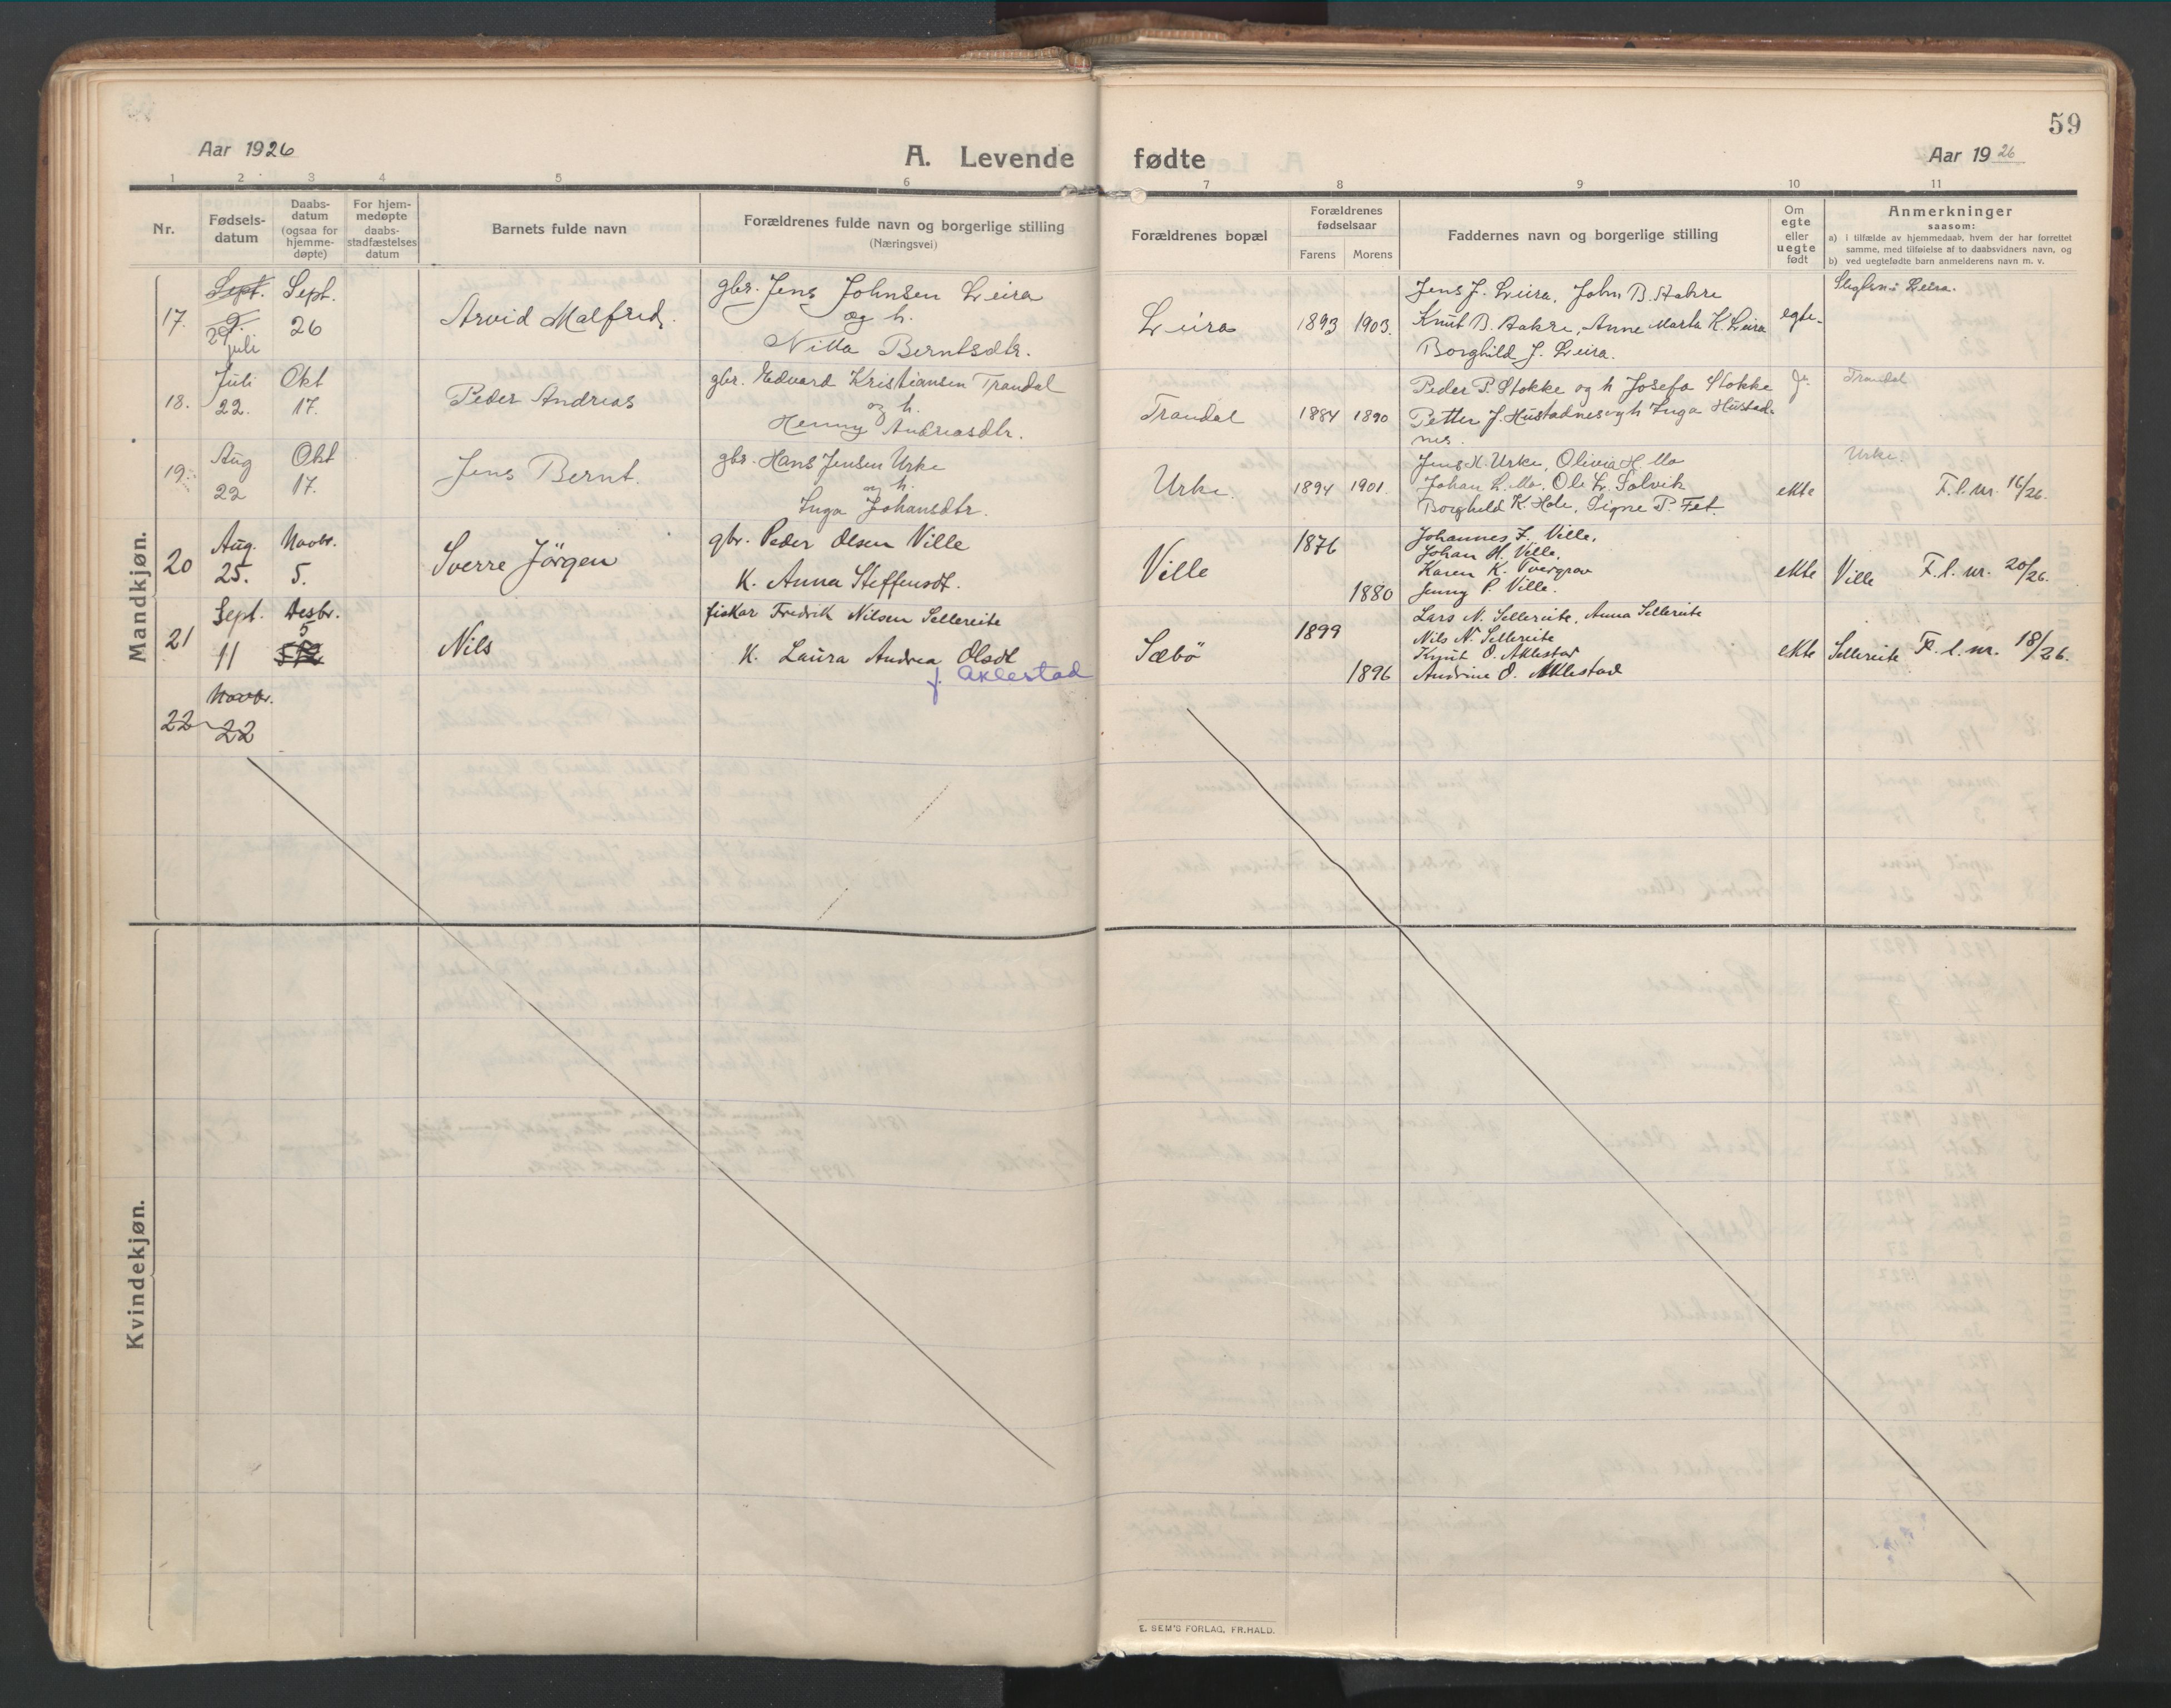 59
Aar 1926
A. Levende fødte
Aar 1926
1 2 3 4 5 6 7 8 9 10 11
Nr.
Fødsels-
datum
Daabs-
datum
(ogsaa for
hjemme-
døpte)
For hjem-
medøpte
daabs-
stadfæstelses
datum
Barnets fulde navn
Forældrenes fulde navn og borgerlige stilling
(Næringsvei)
Forældrenes bopæl
Forældrenes
fødselsaar
Farens Morens
Faddernes navn og borgerlige stilling
Om
egte
eller
uegte
født
Anmerkninger
saasom:
a) i tilfælde av hjemmedaab, hvem der har forrettet
samme, med tilføielse af to daabsvidners navn, og
b) ved uegtefødte barn anmelderens navn m. v.
Mandkjøn.
17.
Sept.
9.
29
juli
Sept.
26
Arvid Malfred.
gbr. Jens Johnsen Leira
og h.
Berntsdtr.
Leira
1893 1903.
Jens J. Leira, John B. Aakre
Knut B. Aakre, Anne Marta K. Leira
Borghild J. Leira.
egte.
Leira.
18.
Juli
22.
Okt
17.
Peder Andreas
gbr. Edvard Kristiansen Trandal
og h.
Henny Andreasdtr.
Trandal
1884 1890
Peder P. Stokke og h Josefa Stokke
Petter J. Hustadnes og h Inga Hustad-
nes.
Trandal
19.
Aug
22
Okt
17.
Jens Bernt.
gbr. Hans Jensen Urke
og h.
Inga Johansdtr.
Urke.
1894 1901.
Jens K. Urke, Olivia H. Mo
Johan L. Mo, Ole L. Solvik
Borghild K. Hole, Signe P. Fet.
ekte
Urke.
F.l. nr. 16/26.
20
Aug.
25.
Novbr.
5.
Sverre Jörgen
gbr. Peder Olsen Ville
K. Anna Steffensdt.
Ville
1876
1880
Johannes J. Ville,
Johan H. Ville,
Karen K. Tvergrov
Jenny P. Ville.
ekte
Ville
F.l. nr. 20/26.
21
Sept.
11
Desbr.
5
Nils
fiskar Fredrik Nilsen Sellereite
K. Laura Andrea Olsdt
f. Aklestad
Sæbö
1899
1896
Lars N. Sellereite, Anna Sellereite
Nils N. Sellereite
Knut O. Aklestad
Andrine O. Aklestad
ekte
Sellereite
F. l. nr. 18/26.
22
Novbr.
22
Kvindekjøn.
E. SEM'S FORLAG, FR.HALD.